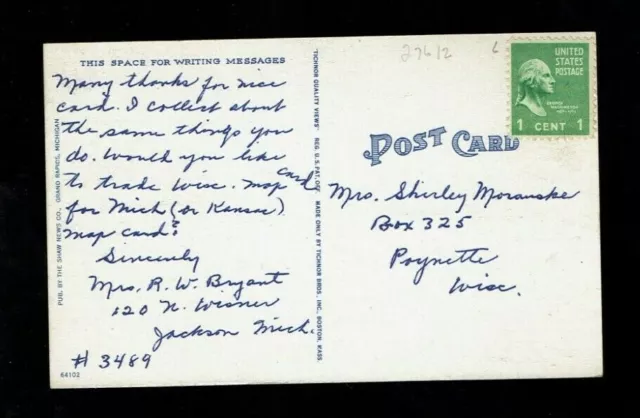 THIS SPACE FOR WRITING MESSAGES
Many thanks for nice
card. I collect about
the same things you
do. Would you like
to trade Wisc. map card
for Mich (or Kansas)
map card?
Sincerely
Mrs. R. W. Bryant
120 N. Wisner
Jackson Mich.
# 3489
64102
PUB. BY THE SHAW NEWS CO., GRAND RAPIDS, MICHIGAN
"TICHNOR QUALITY VIEWS" REG. U.S. PAT. OFF. MADE ONLY BY TICHNOR BROS., INC., BOSTON, MASS.
27612
UNITED
STATES
POSTAGE
1 CENT 1
POST CARD
Mrs. Shirley Moranske
Box 325
Poynette
Wisc.